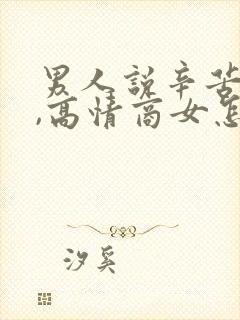 男人说辛苦
,高情商女怎
汐奚